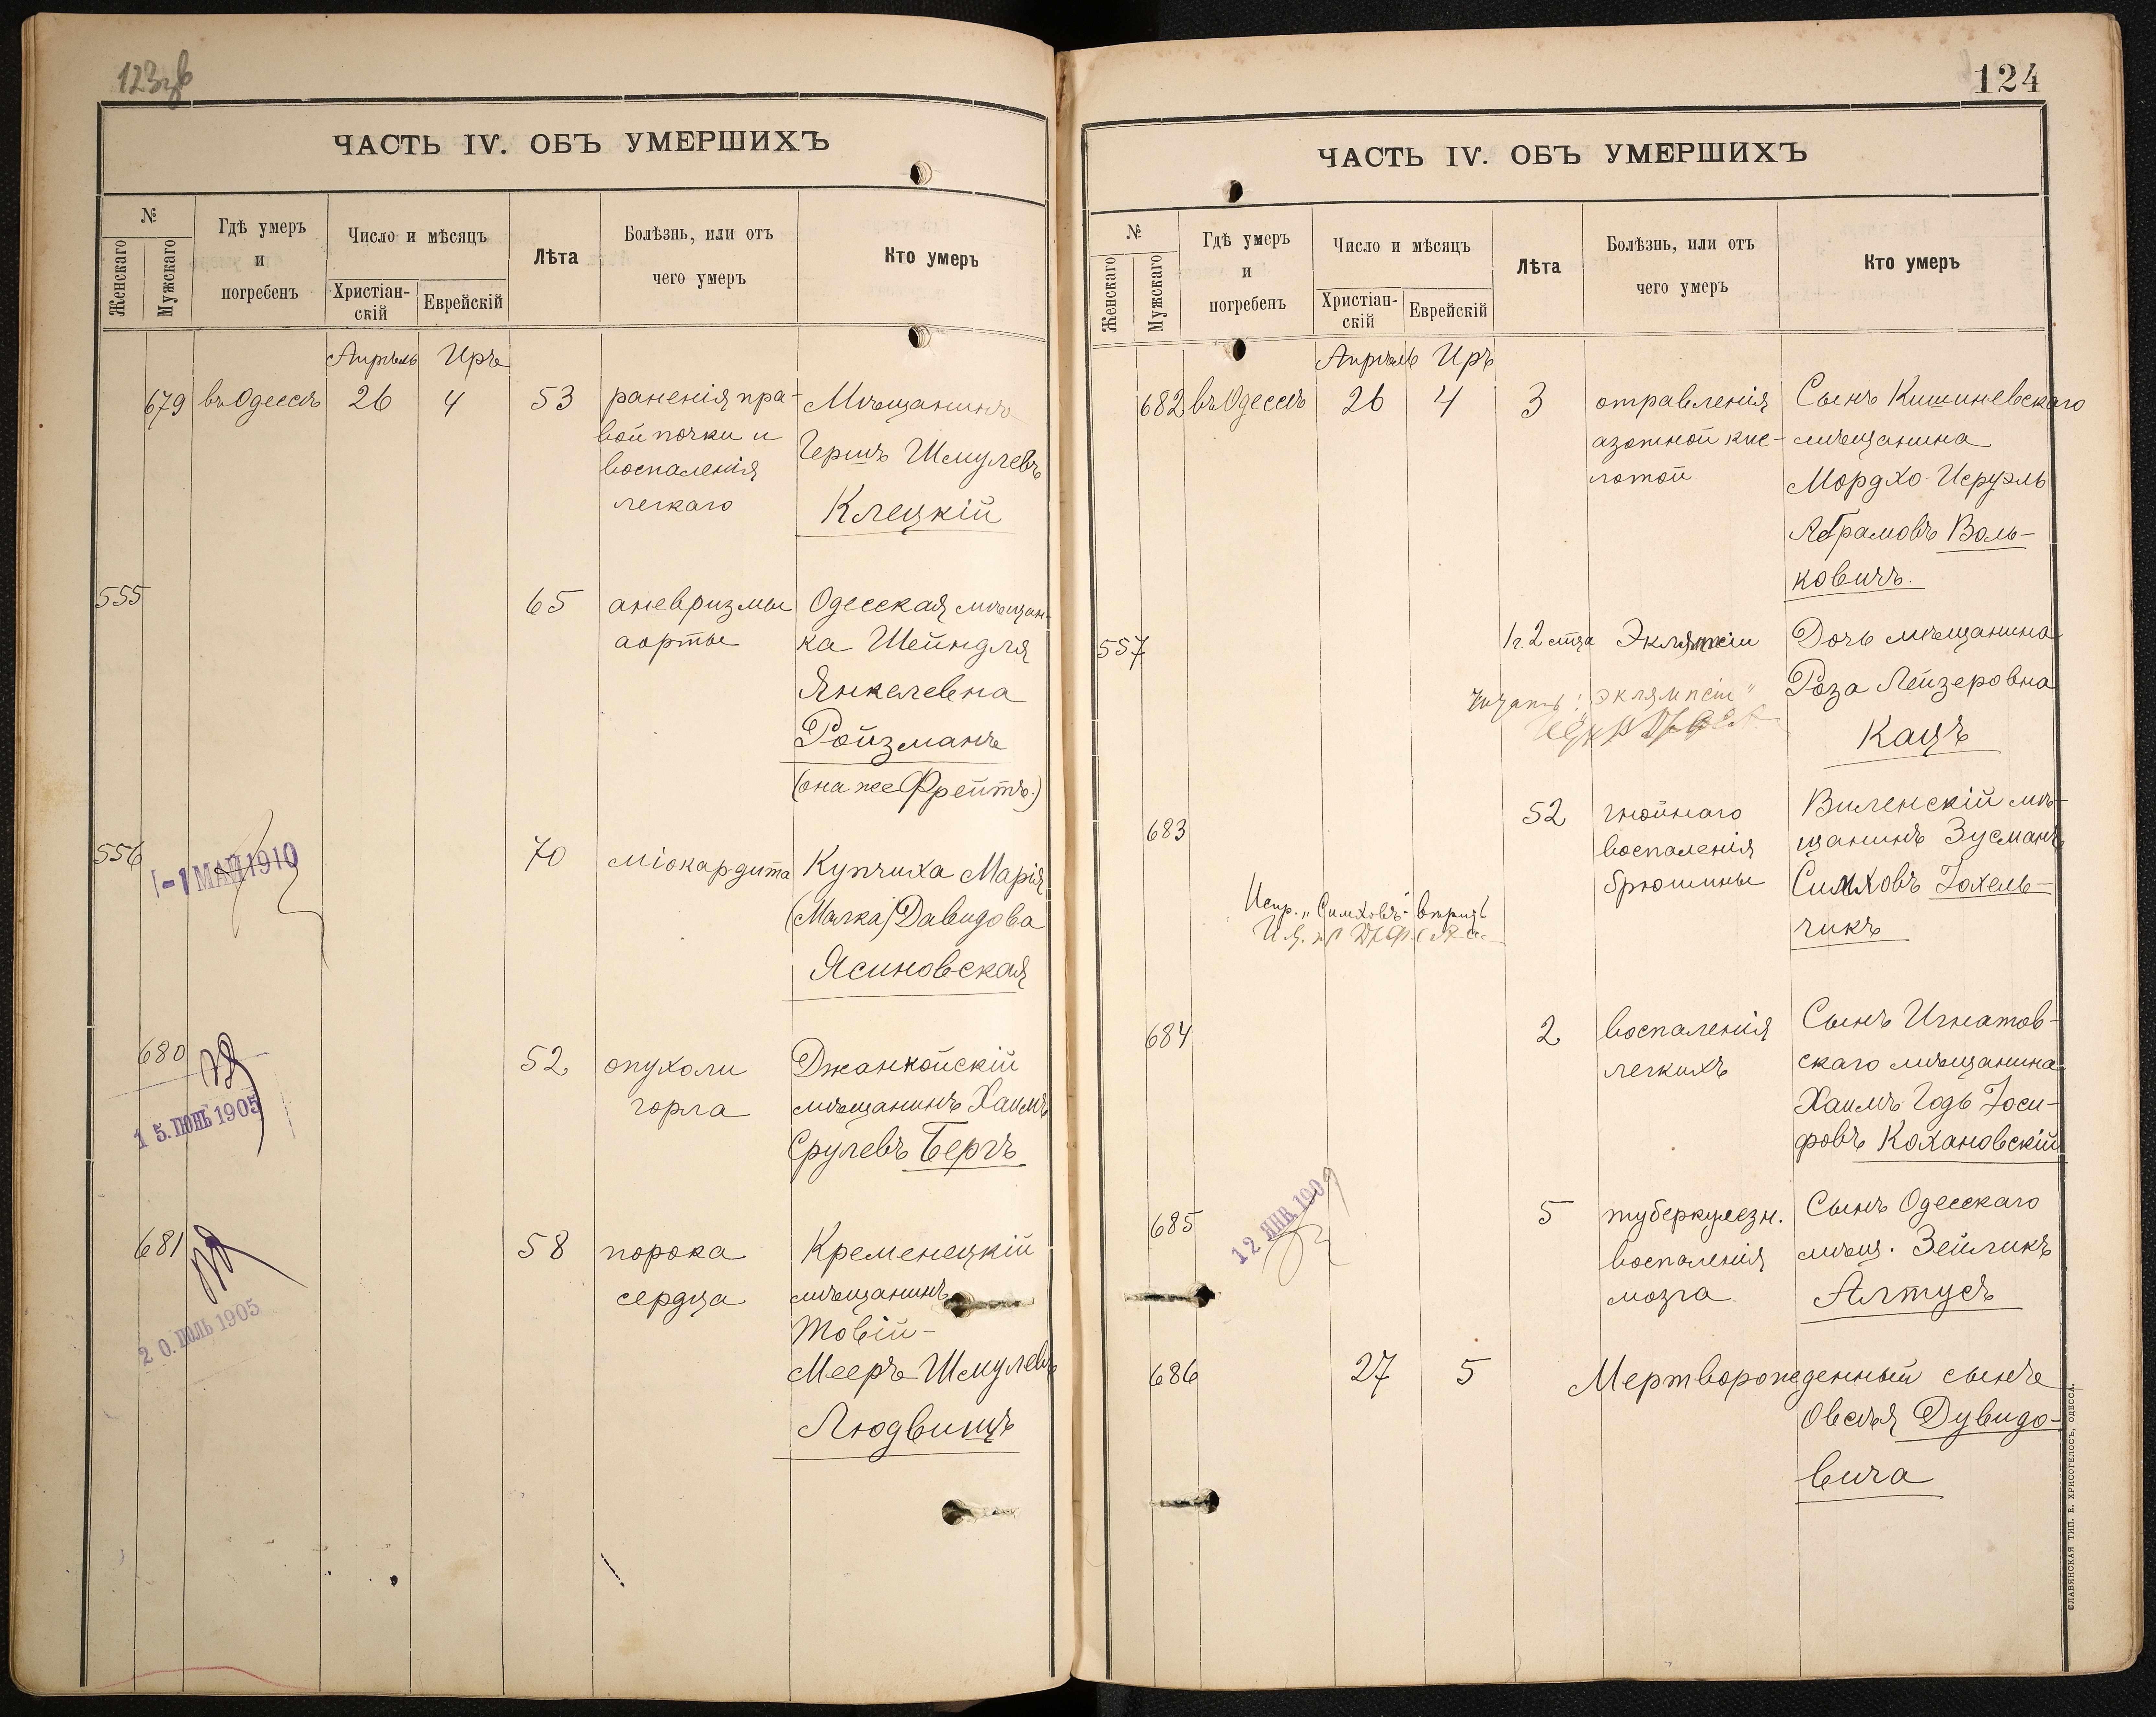 123об
ЧАСТЬ IV. ОБЪ УМЕРШИХЪ
№
Женскаго
Мужскаго
Гдѣ умеръ
и
погребенъ
Число и мѣсяцъ
Христіан-
скій
Еврейскій
Лѣта
Болѣзнь, или отъ
чего умеръ
Кто умеръ
Апрѣль Иръ
679 въ Одессѣ 26 4 53 раненія пра- Мѣщанинъ
вой почки и Гершъ Шмулевъ
воспаленія
легкаго Клецкій
555 65 аневризмы Одесская мѣщан-
аорты ка Шейндля
Янкелевна
Ройзманъ
(она же Фрейтъ.)
556 70 міокардита Купчиха Марія
-1 МАЙ 1910
(Малка) Давидова
Ясиновская
680 52 опухоли Джанкойскій
горла мѣщанинъ Хаимъ
15. ІЮНЬ 1905
Срулевъ Бергъ
681 58 порока Кременецкій
сердца мѣщанинъ
Товій-
20. ІЮЛЬ 1905
Мееръ Шмулевъ
Людвищъ
124
ЧАСТЬ IV. ОБЪ УМЕРШИХЪ
№
Женскаго
Мужскаго
Гдѣ умеръ
и
погребенъ
Число и мѣсяцъ
Христіан-
скій
Еврейскій
Лѣта
Болѣзнь, или отъ
чего умеръ
Кто умеръ
Апрѣль Иръ
682 въ Одессѣ 26 4 3 отравленія Сынъ Кишиневскаго
азотной кис- мѣщанина
лотой Мордхо-Исруэль
Абрамовъ Воль-
ковичъ.
557 1 г. 2 мѣсяца Эклямпсіи Дочь мѣщанина
Читать: „эклямпсіи" Роза Лейзеровна
Кацъ
683 52 гнойнаго Виленскій мѣ-
воспаленія щанинъ Зусманъ
брюшины Симховъ Іохель-
Испр. „Симховъ" вѣрить
чикъ
684 2 воспаленія Сынъ Игнатов-
легкихъ скаго мѣщанина
Хаимъ-Годь Іоси-
фовъ Кохановскій
685 5 туберкулезн. Сынъ Одесскаго
12 ЯНВ. 1909
воспаленія мѣщ. Зейликъ
мозга Алтусъ
686 27 5 Мертворожденный сынъ
Овсѣя Дувидо-
вича
СЛАВЯНСКАЯ ТИП. Е. ХРИСОГЕЛОСЪ, ОДЕССА.